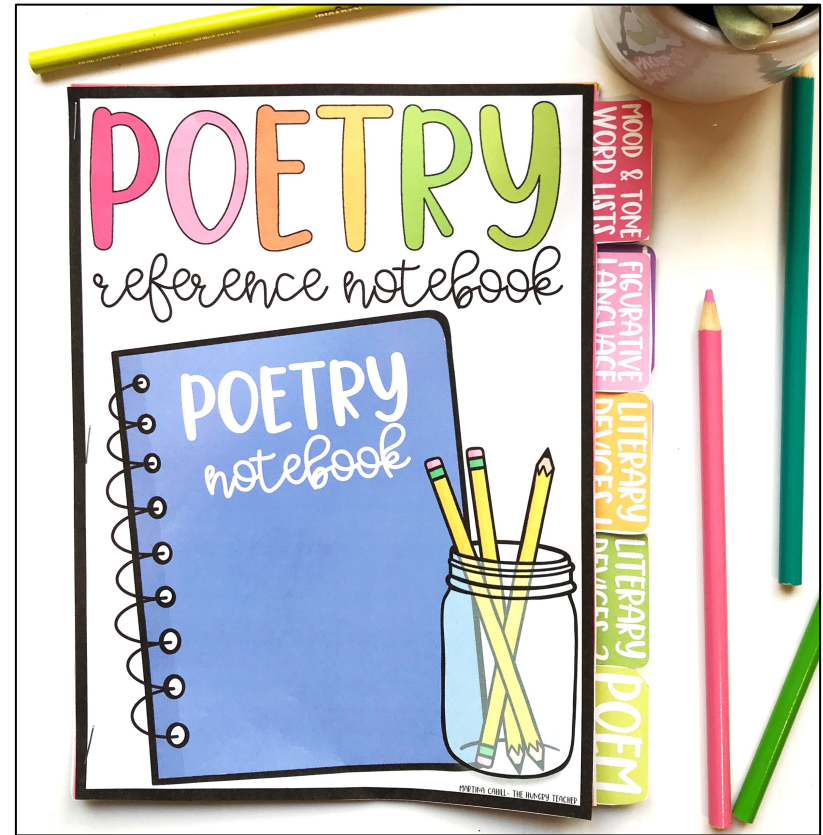 POETRY
reference notebook
POETRY
notebook
MARTINA CAHILL- THE HUNGRY TEACHER
MOOD & TONE
WORD LISTS
FIGURATIVE
LANGUAGE
LITERARY
DEVICES 1
LITERARY
DEVICES 2
POEM